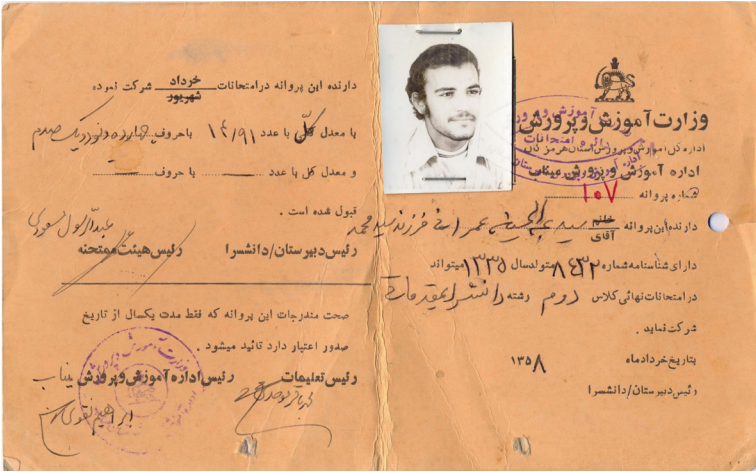 وزارت آموزش و پرورش
اداره کل آموزش و پرورش استان هرمزگان
اداره آموزش و پرورش میناب
شماره پروانه ۱۰۷
دارنده این پروانه خانم آقای سید عمرانی فرزند سید محمد
دارای شناسنامه شماره ۸۴۳۲ متولد سال ۱۳۳۵ میتواند
در امتحانات نهائی کلاس دوم رشته دانشسرای مقدماتی
شرکت نماید .
بتاریخ خرداد ماه ۱۳۵۸
رئیس دبیرستان / دانشسرا
دارنده این پروانه در امتحانات خرداد شهریور شرکت نموده
با معدل کل با عدد ۱۴/۹۱ با حروف چهارده و نود و یک صدم
و معدل کل با عدد — با حروف —
قبول شده است .
رئیس دبیرستان / دانشسرا رئیس هیئت ممتحنه
عبدالرسول مسعودی
صحت مندرجات این پروانه که فقط مدت یکسال از تاریخ
صدور اعتبار دارد تائید میشود .
رئیس تعلیمات رئیس اداره آموزش و پرورش میناب
ابراهیم تقوی